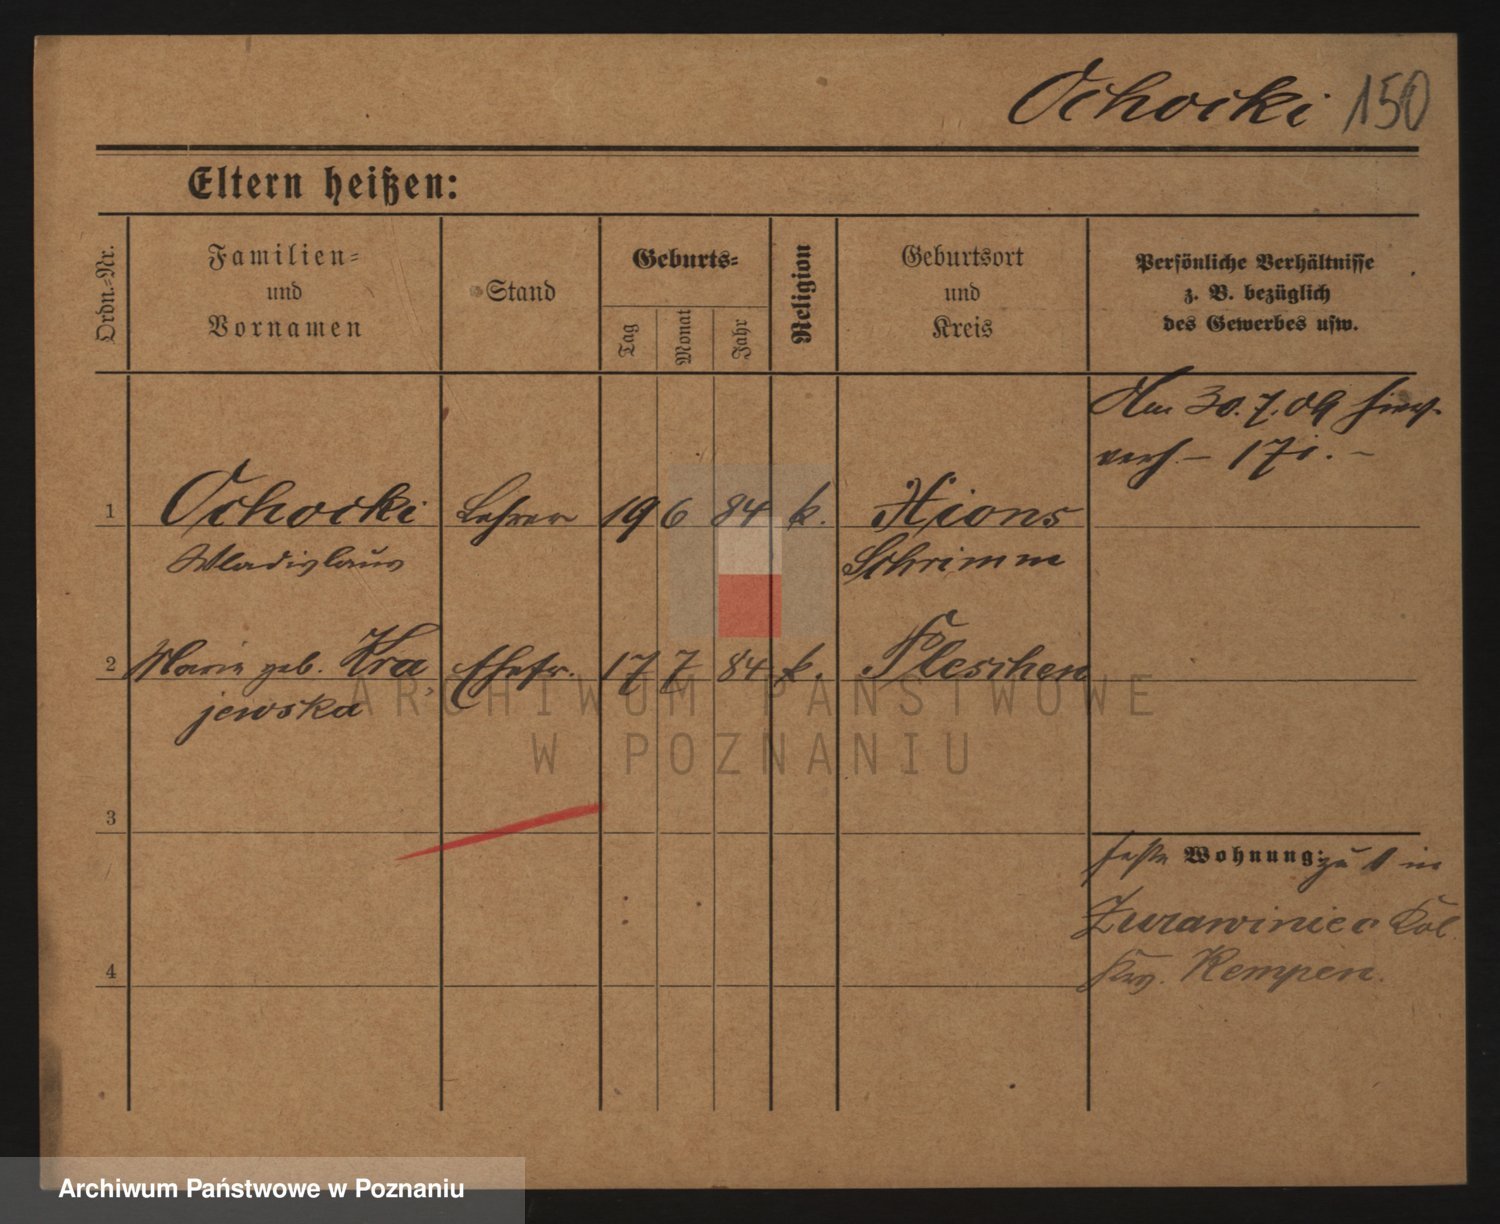 Ochocki 150
Eltern heißen:
Ordn.-Nr.
Familien-
und
Vornamen
Stand
Geburts-
Tag
Monat
Jahr
Religion
Geburtsort
und
Kreis
Persönliche Verhältnisse
z. B. bezüglich
des Gewerbes usw.
Am 30.7.09
verh. –
1 Ochocki Lehrer 19 6 84 k. Xions
Wladislaus Schrimm
2 Marie geb. Kra Ehefr. 17 7 84 k. Pleschen
jewska
3
feste Wohnung: zu 1 in
Zurawiniec Kol.
4
Krs. Kempen.
ARCHIWUM PAŃSTWOWE
W POZNANIU
Archiwum Państwowe w Poznaniu